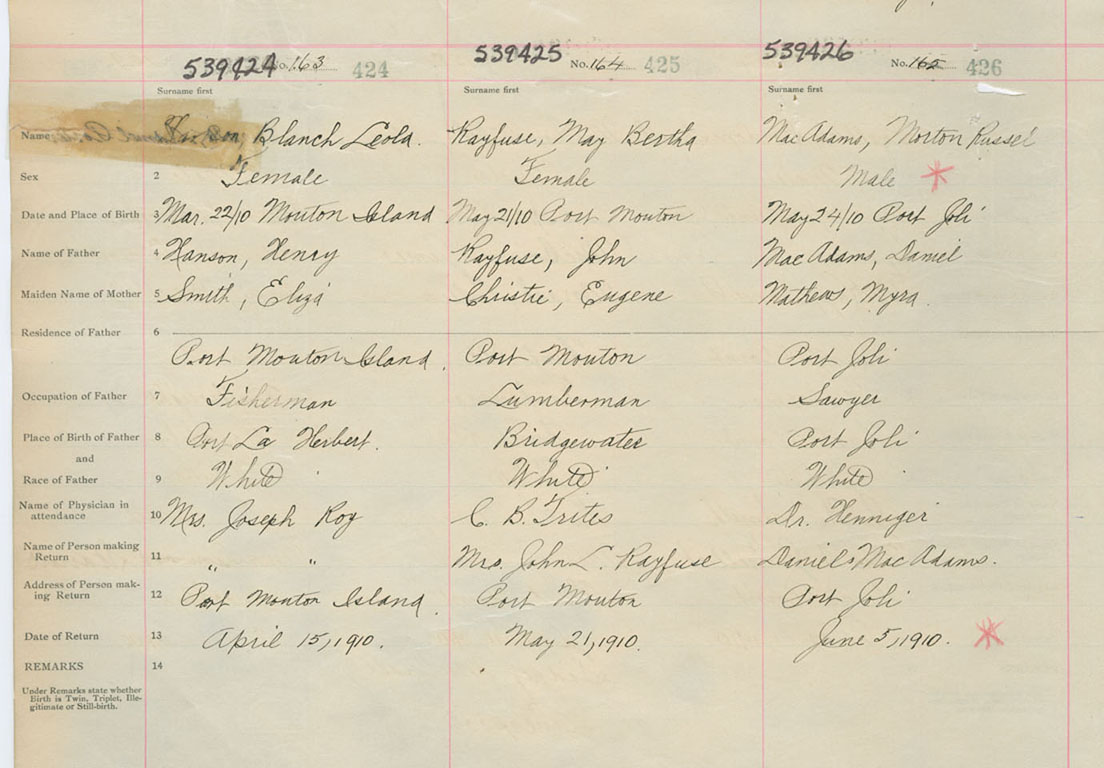 539424 No. 163 424 539425 No. 164 425 539426 No. 165 426
Surname first Surname first Surname first
Name Blanch Leola. Rayfuse, May Bertha MacAdams, Morton Russel
Sex 2 Female Female Male
Date and Place of Birth 3 Mar. 22/10 Mouton Island May 21/10 Port Mouton May 24/10 Port Joli
Name of Father 4 Hanson, Henry Rayfuse, John MacAdams, Daniel
Maiden Name of Mother 5 Smith, Eliza Christie, Eugene Mathews, Myra.
Residence of Father 6
Port Mouton Island. Port Mouton Port Joli
Occupation of Father 7 Fisherman Lumberman Sawyer
Place of Birth of Father 8 Port La Herbert. Bridgewater Port Joli
and
Race of Father 9 White White White
Name of Physician in
attendance 10 Mrs. Joseph Roy C. B. Trites Dr. Henniger
Name of Person making
Return 11 " " Mrs. John L. Rayfuse Daniel MacAdams.
Address of Person mak-
ing Return 12 Port Mouton Island. Port Mouton Port Joli
Date of Return 13 April 15, 1910. May 21, 1910. June 5, 1910.
REMARKS 14
Under Remarks state whether
Birth is Twin, Triplet, Ille-
gitimate or Still-birth.